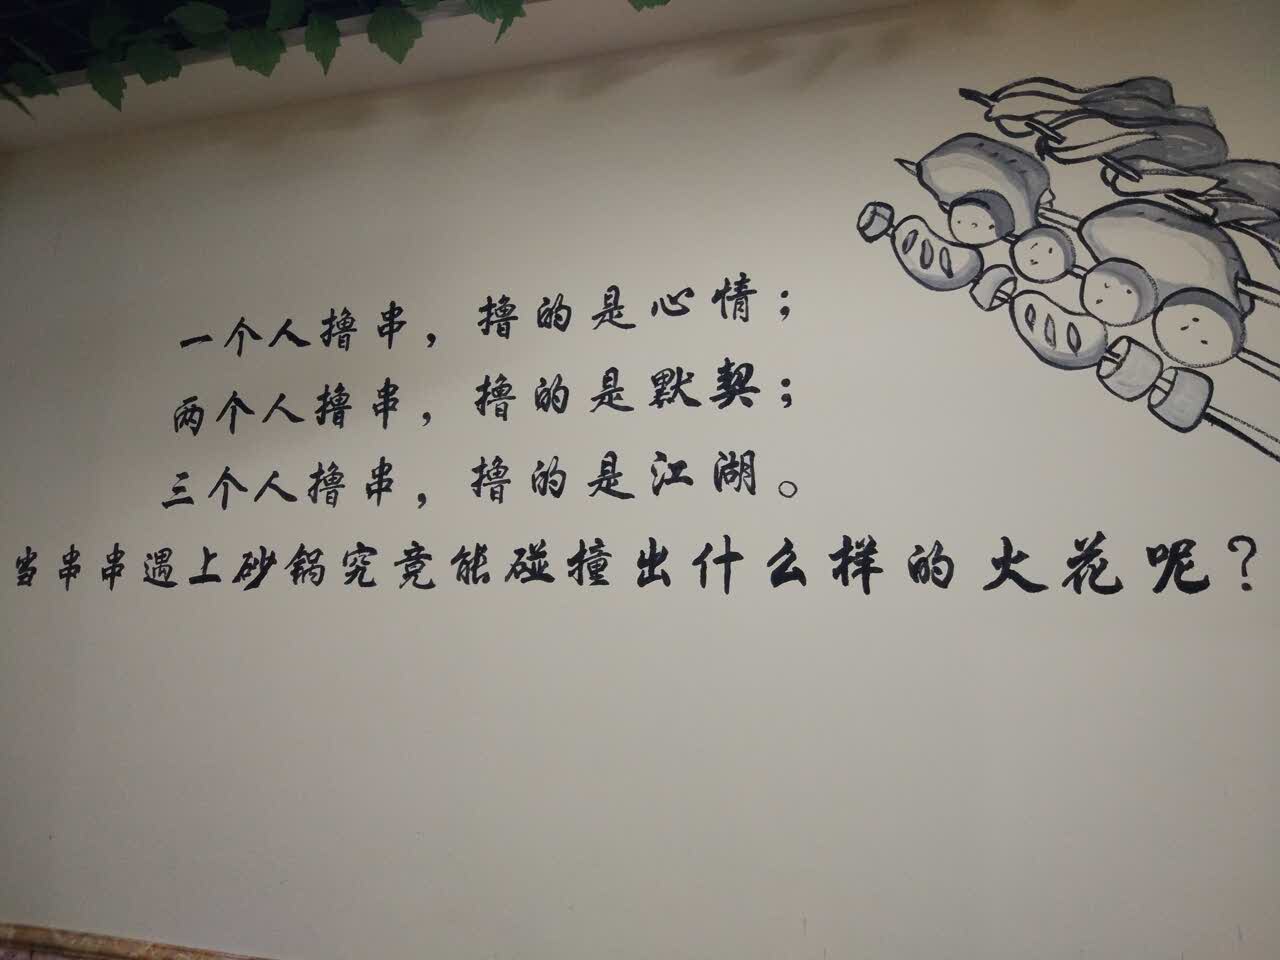 一个人撸串，撸的是心情；
两个人撸串，撸的是默契；
三个人撸串，撸的是江湖。
当串串遇上砂锅究竟能碰撞出什么样的火花呢？